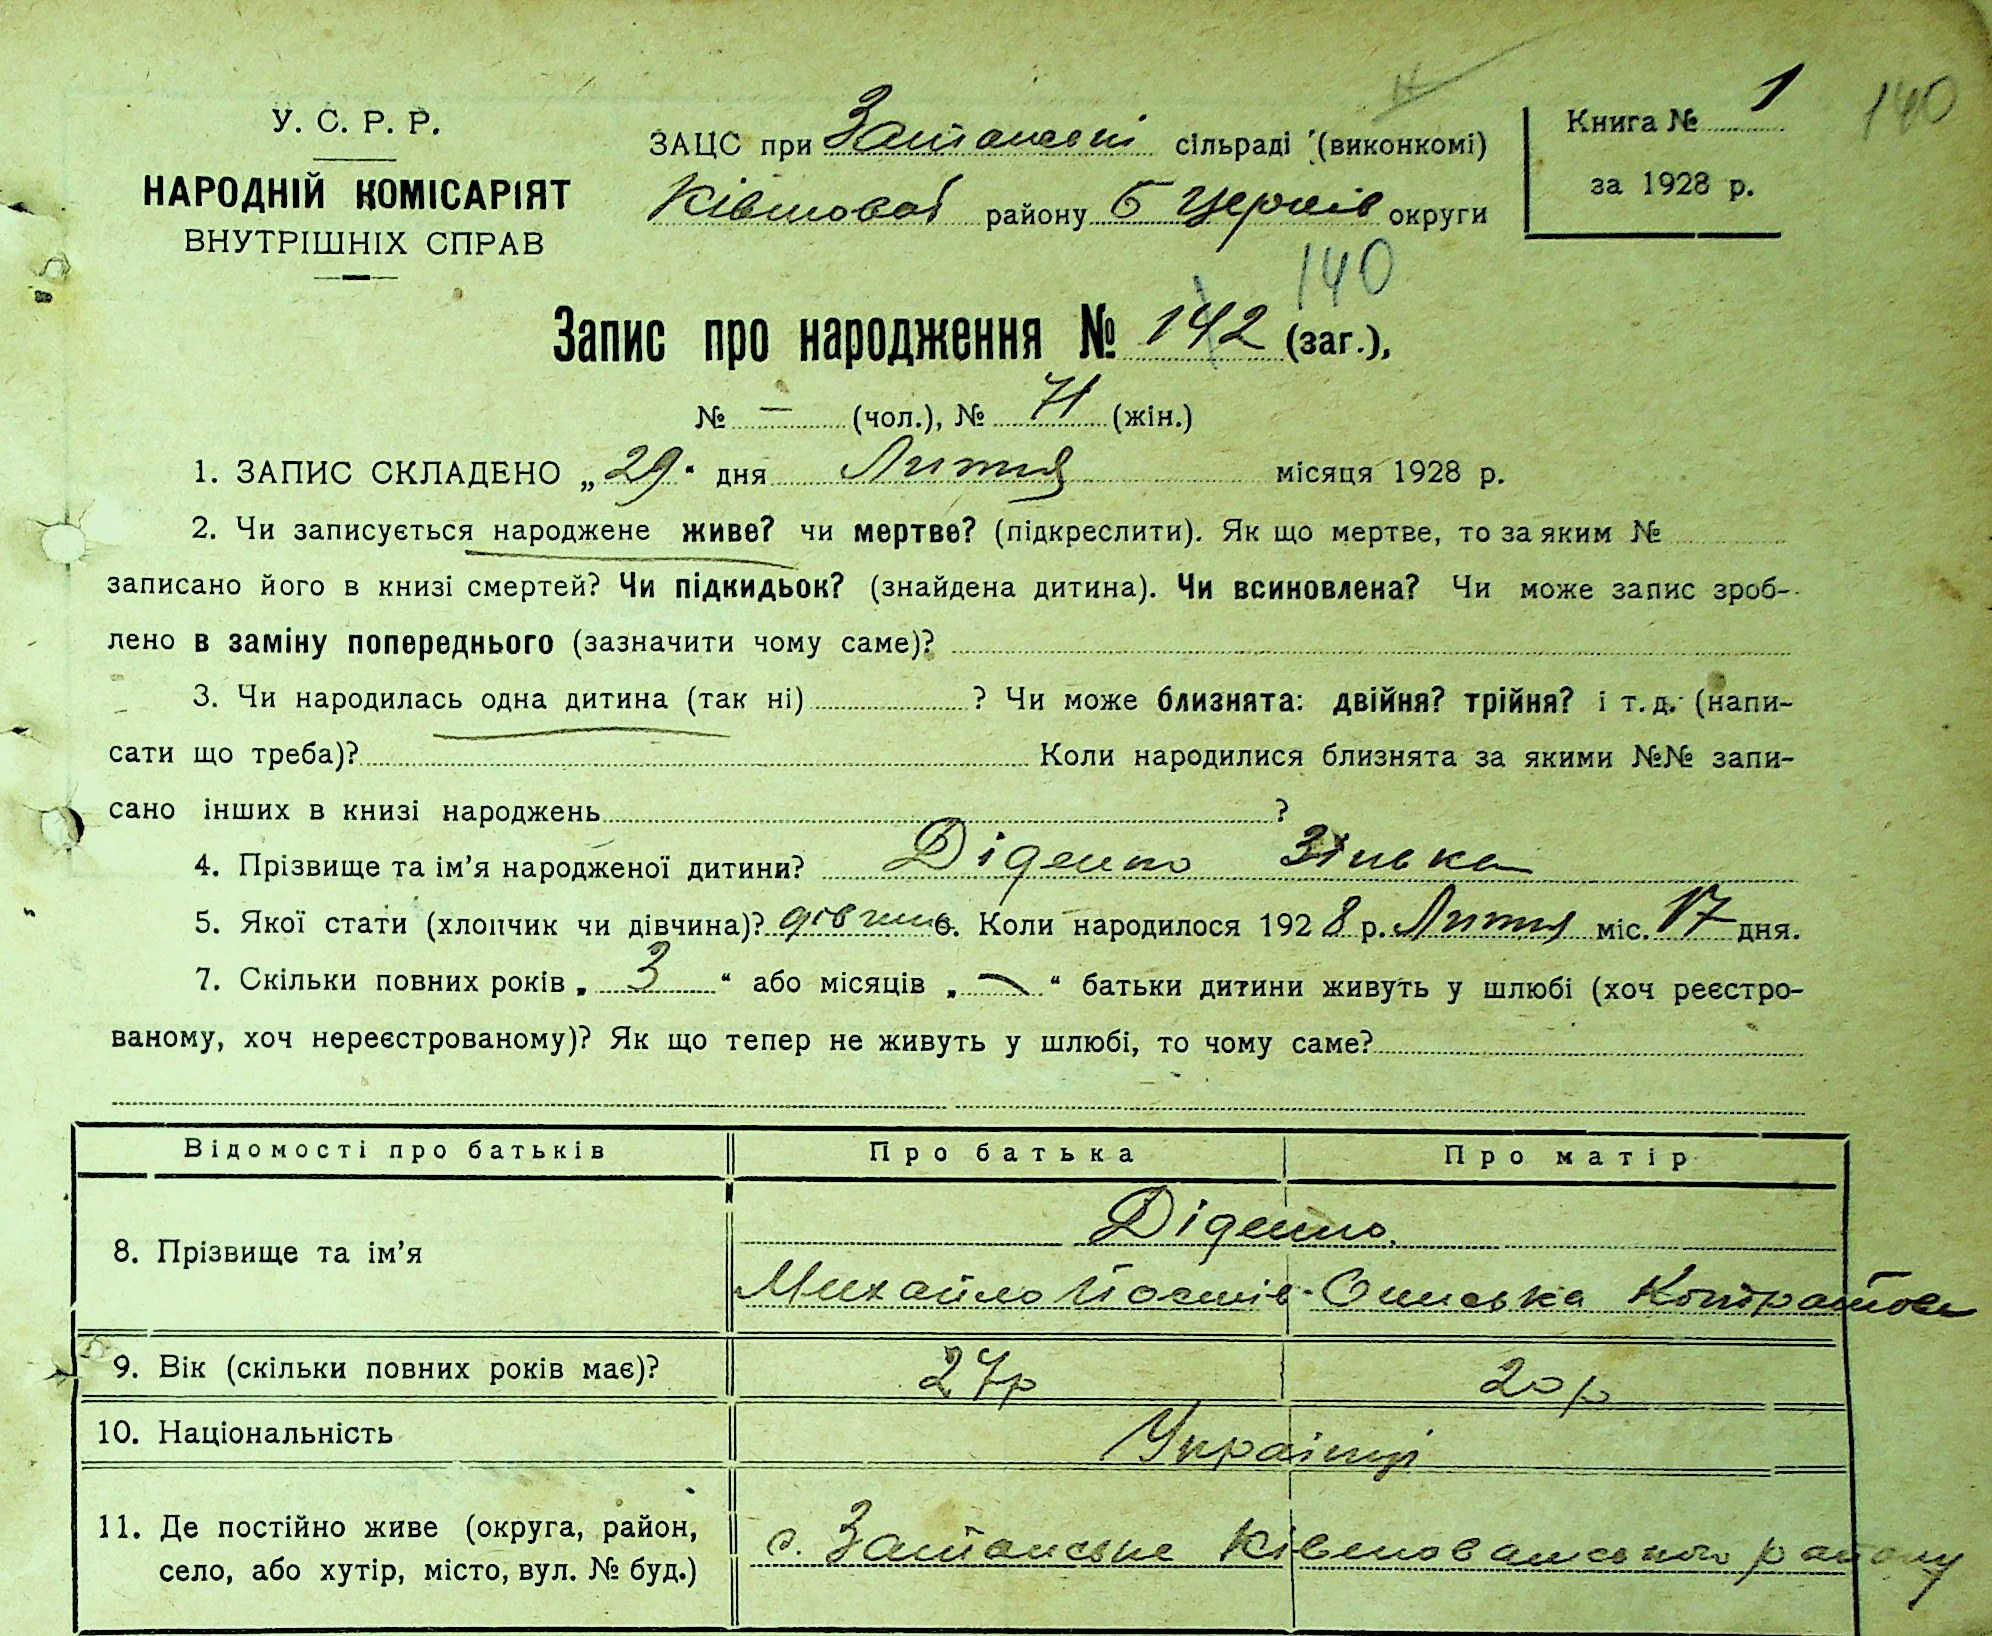 140
У. С. Р. Р.
НАРОДНІЙ КОМІСАРІЯТ
ВНУТРІШНІХ СПРАВ
ЗАЦС при сільраді (виконкомі)
району Б Церків округи
Книга № 1
за 1928 р.
140
Запис про народження № 142 (заг.),
№ — (чол.), № 71 (жін.)
1. ЗАПИС СКЛАДЕНО „29“ дня Лютня місяця 1928 р.
2. Чи записується народжене живе? чи мертве? (підкреслити). Як що мертве, то за яким №
записано його в книзі смертей? Чи підкидьок? (знайдена дитина). Чи всиновлена? Чи може запис зроб-
лено в заміну попереднього (зазначити чому саме)?
3. Чи народилась одна дитина (так ні) ? Чи може близнята: двійня? трійня? і т. д. (напи-
сати що треба)? Коли народилися близнята за якими №№ запи-
сано інших в книзі народжень ?
4. Прізвище та ім’я народженої дитини? Діденко Зінька
5. Якої стати (хлопчик чи дівчина)? дівчин 6. Коли народилося 1928 р. Лютня міс. 17 дня.
7. Скільки повних років „ 3 “ або місяців „ — “ батьки дитини живуть у шлюбі (хоч реєстро-
ваному, хоч нереєстрованому)? Як що тепер не живуть у шлюбі, то чому саме?
Відомості про батьків Про батька Про матір
8. Прізвище та ім’я Діденко.
Михайло Йосипів Ониська Кондратова
9. Вік (скільки повних років має)? 27р 20р
10. Національність Українці
11. Де постійно живе (округа, район,
село, або хутір, місто, вул. № буд.) с. району